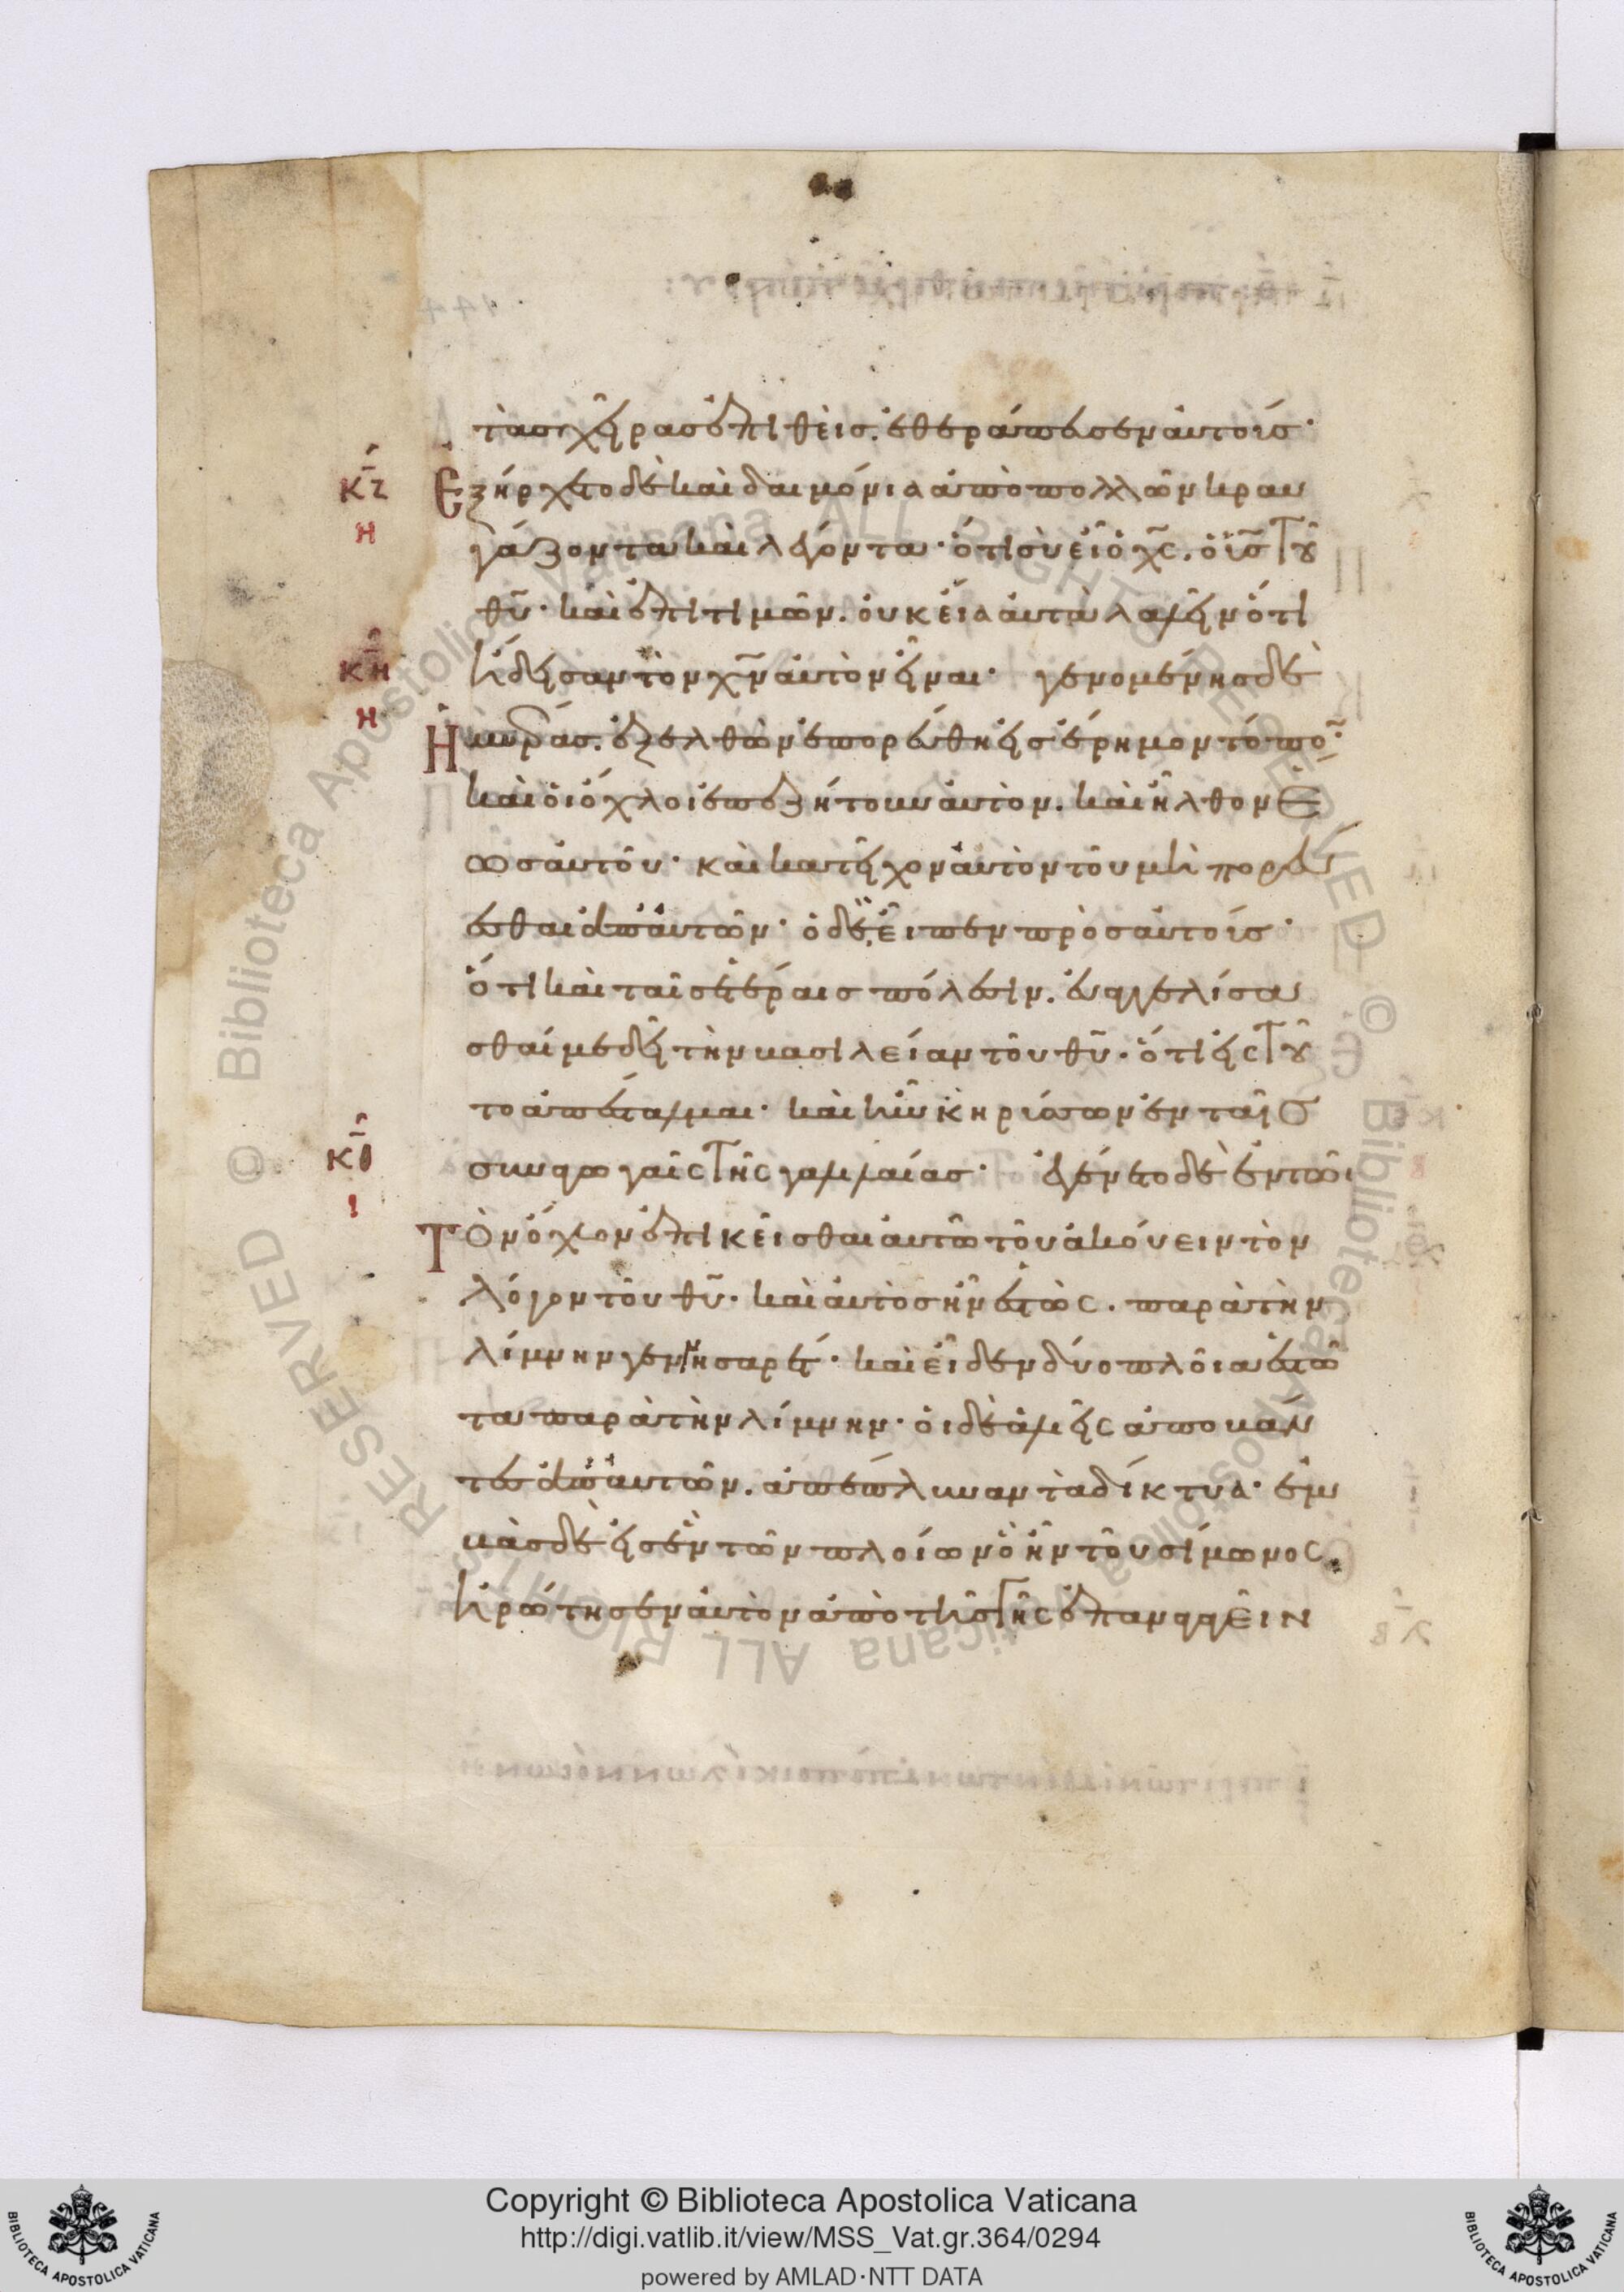 τὰσ χεῖρασ ἐπιθεὶσ. ἐθεράπευσεν αὐτοίσ·
κζ Ἐξήρχετο δὲ καὶ δαιμόνια ἀπὸ πολλῶν κραυ
η γάζοντα καὶ λέγοντα· ὅτι σὺ εἶ ὁ χ̅ς̅. ὁ ὑ̅σ̅ τοῦ
θ̅υ̅· καὶ ἐπιτιμῶν. οὐκ εἴα αὐτὰ λαλεῖν ὅτι
κη ἤδεισαν τὸν χ̅ν̅ αὐτὸν εἶναι· γενομένησ δὲ
η Ἡμέρασ. ἐξελθὼν ἐπορεύθη εἰσ ἔρημον τόπο̅·
καὶ οἱ ὄχλοι ἐπεζήτουν αὐτὸν. καὶ ἦλθον ἕ
ωσ αὐτοῦ· καὶ κατεῖχον αὐτὸν τοῦ μὴ πορεύ
εσθαι ἀπ' αὐτῶν· ὁ δὲ εἶπεν πρὸσ αὐτοίσ·
ὅτι καὶ ταῖσ ἑτέραισ πόλεσιν. εὐαγγελίσα
σθαί με δεῖ τὴν βασιλείαν τοῦ θ̅υ̅· ὅτι εἰς τοῦ
το ἀπέσταλμαι· καὶ ἦν κηρύσσων ἐν ταῖσ
κθ συναγωγαῖς τῆς γαλιλαίασ· ἐγένετο δὲ ἐν τῶι
ι Τὸν ὄχλον ἐπικεῖσθαι αὐτῶ τοῦ ἀκούειν τὸν
λόγον τοῦ θ̅υ̅· καὶ αὐτὸσ ἦν ἑστὼς. παρὰ τὴν
λίμνην γεννησαρέτ· καὶ εἶδεν δύο πλοῖα ἑστῶ
τα παρὰ τὴν λίμνην· οἱ δὲ ἁλιεῖς ἀποβάν
τεσ ἀπ' αὐτῶν. ἀπέπλυναν τὰ δίκτυα· ἐμ
βὰσ δὲ εἰσ ἓν τῶν πλοίων ὃ ἦν τοῦ σίμωνος.
ἠρώτησεν αὐτὸν ἀπὸ τῆσ γῆς ἐπαναγαγεῖν
Copyright © Biblioteca Apostolica Vaticana
http://digi.vatlib.it/view/MSS_Vat.gr.364/0294
powered by AMLAD·NTT DATA